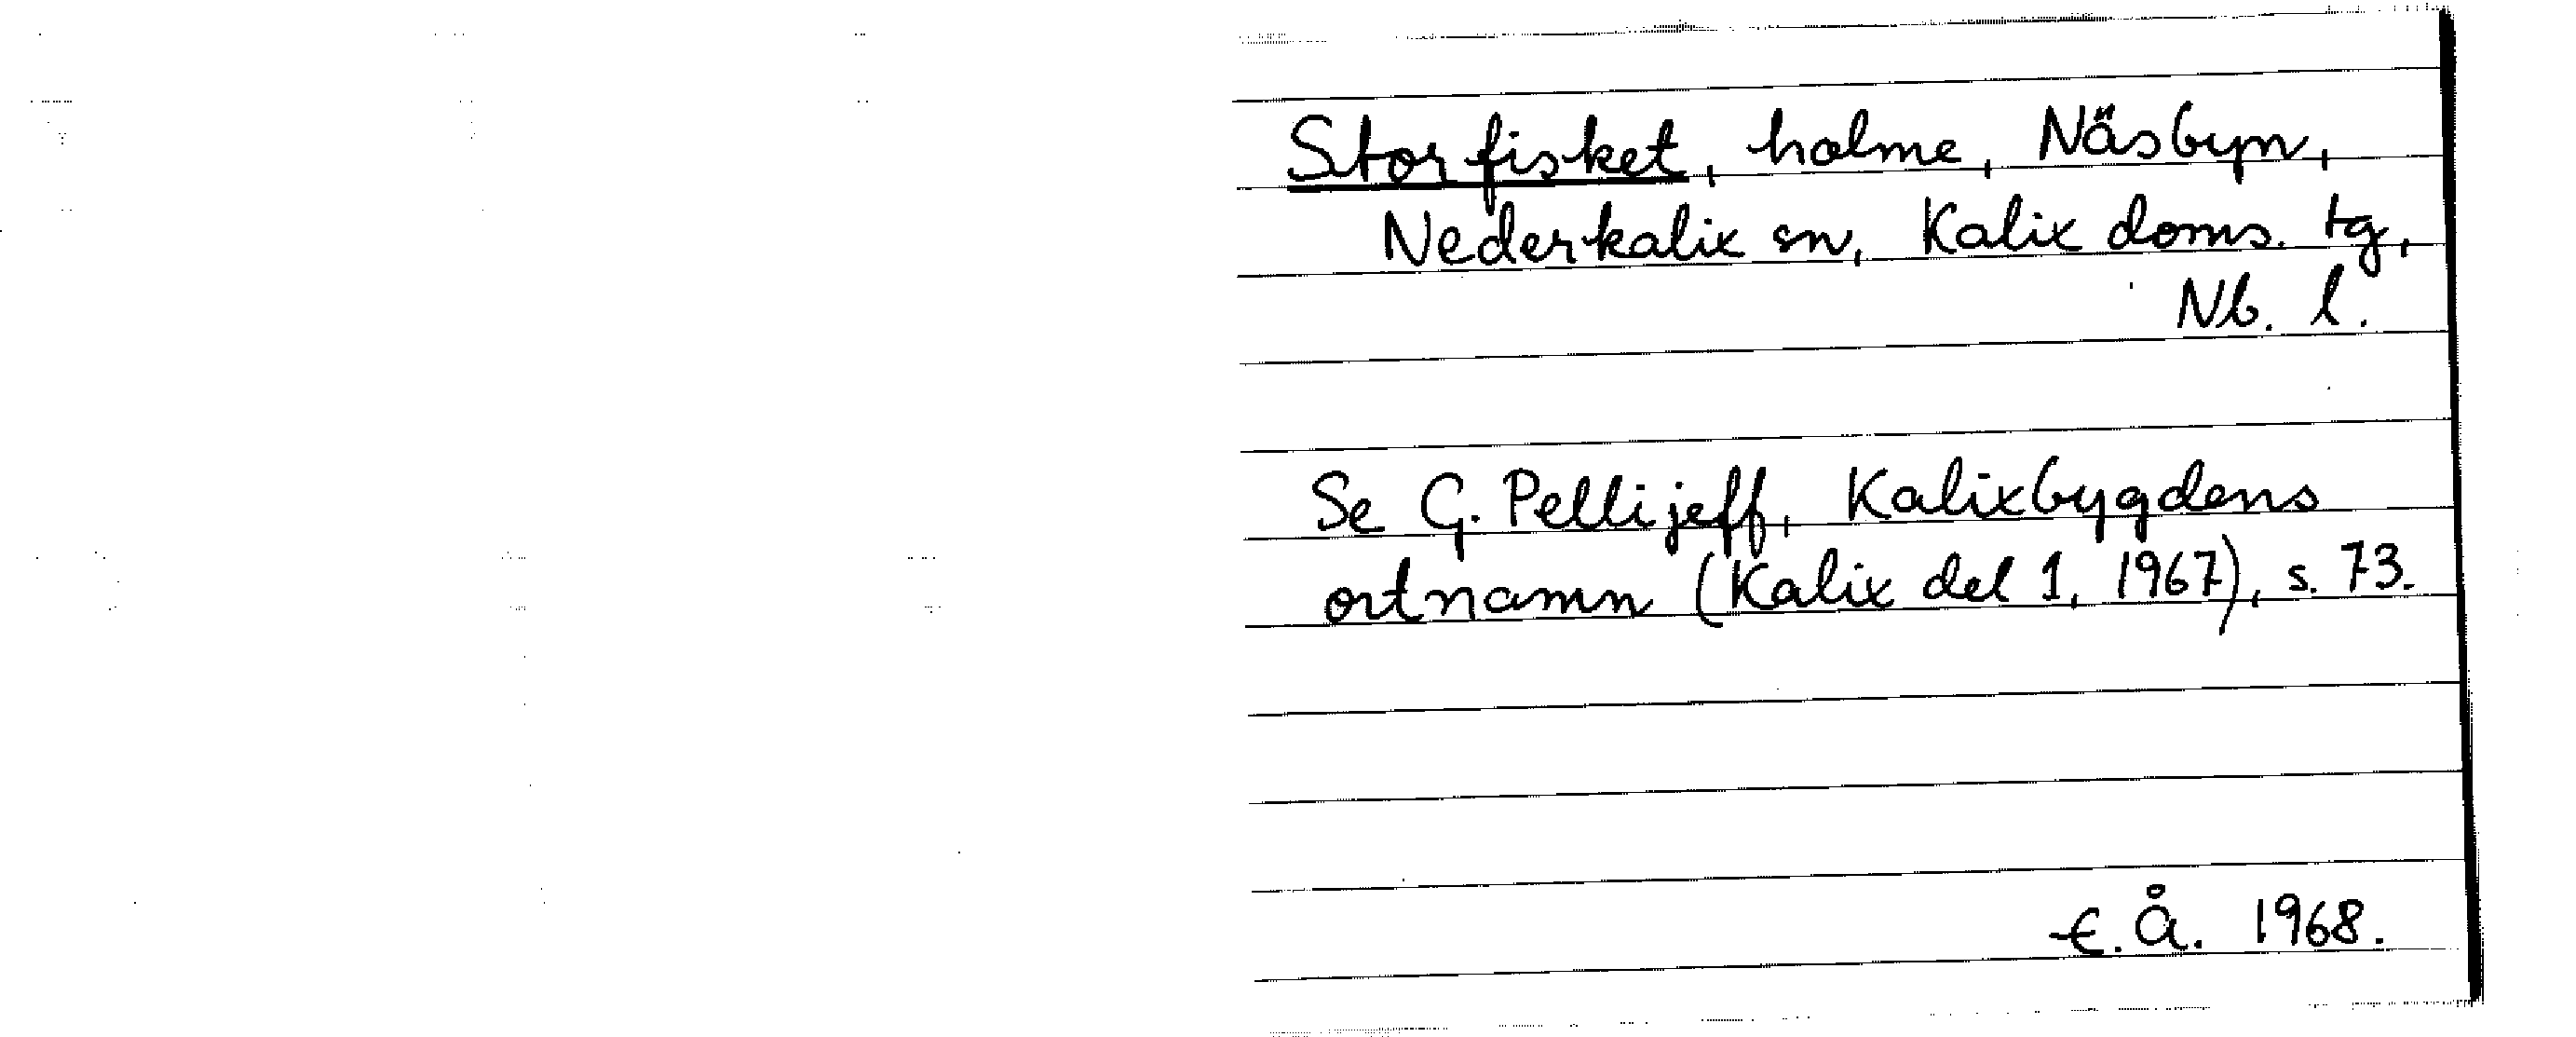 Storfisket, holme, Näsbyn,
Nederkalix sn, Kalix doms. tg,
Nb. l.
Se G. Pellijeff, Kalixbygdens
ortnamn (Kalix del 1, 1967), s. 73.
E. Å. 1968.